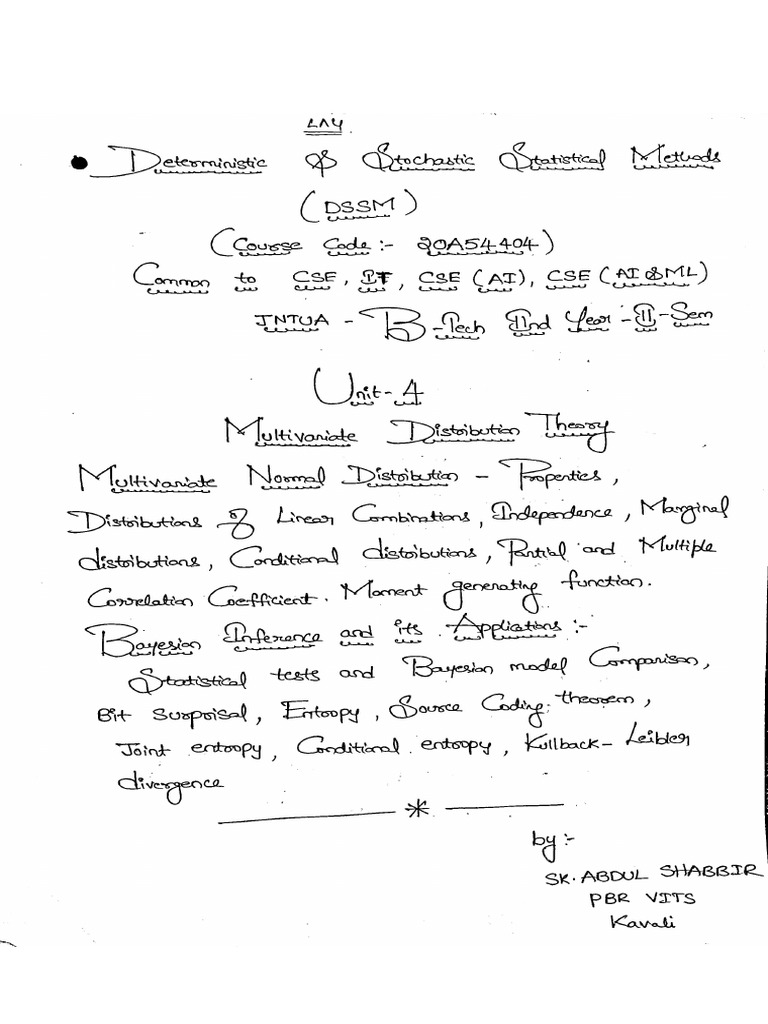 • Deterministic & Stochastic Statistical Methods
(DSSM)
(Course Code:- 20A54404)
Common to CSE, IT, CSE (AI), CSE (AI & ML)
JNTUA - B-Tech IInd Year - II-Sem
Unit-4
Multivariate Distribution Theory
Multivariate Normal Distribution - Properties,
Distributions of Linear Combinations, Independence, Marginal
distributions, Conditional distributions, Partial and Multiple
Correlation Coefficient. Moment generating function.
Bayesian Inference and its Applications:-
Statistical tests and Bayesian model Comparison,
Bit surprisal, Entropy, Source Coding theorem,
Joint entropy, Conditional entropy, Kullback-Leibler
divergence
by:-
SK. ABDUL SHABBIR
PBR VITS
Kavali